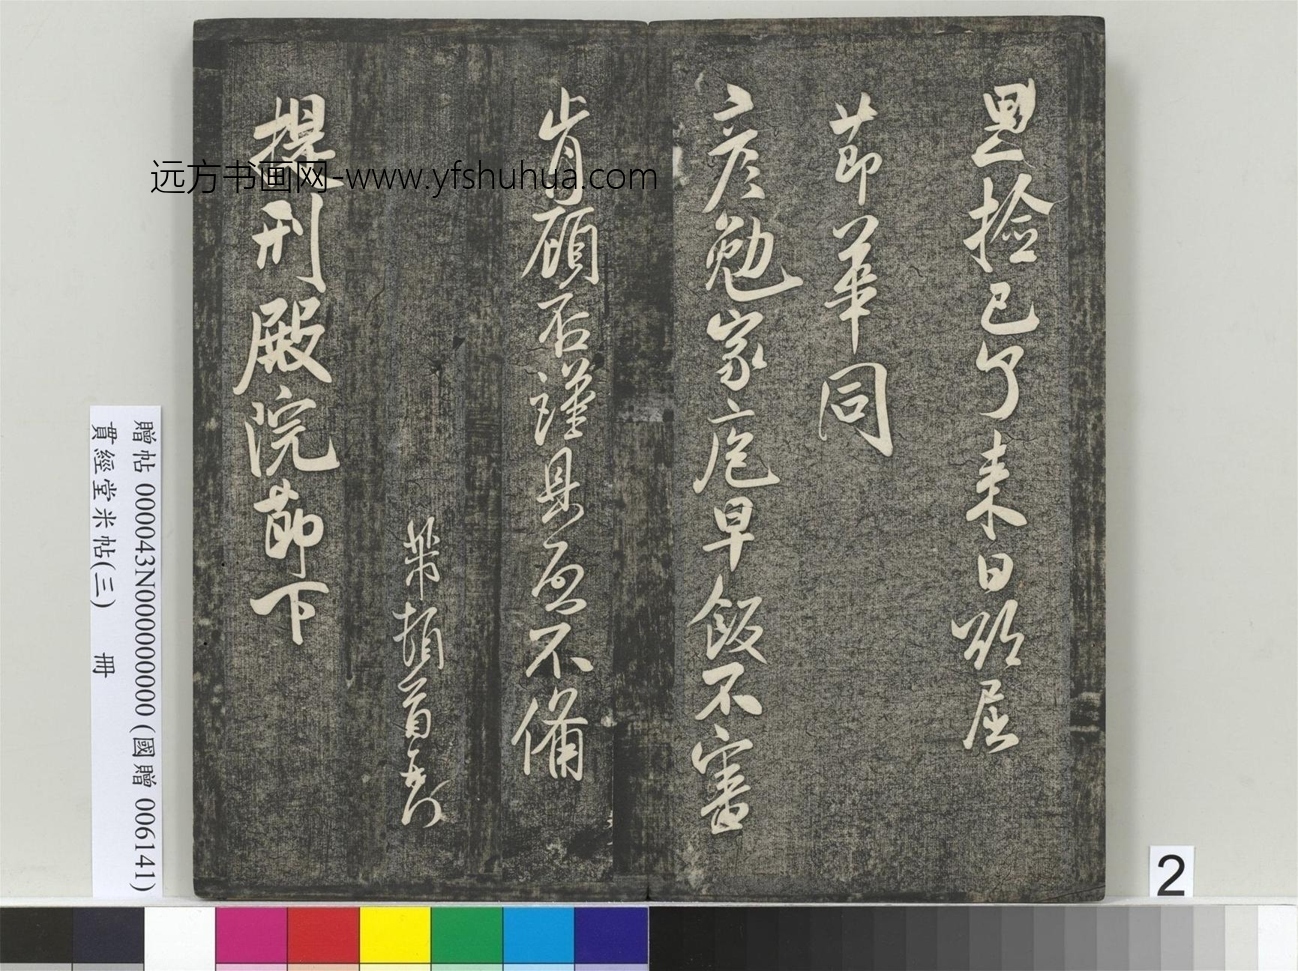 思撿已了来日欲屈
節華同
彦勉家庖早飯不審
肯顧否謹具啓不備
芾頓首再拜
提刑殿院節下
远方书画网-www.yfshuhua.com
贈帖 000043N000000000 (國贈 006141)
貫經堂米帖(三) 冊
2